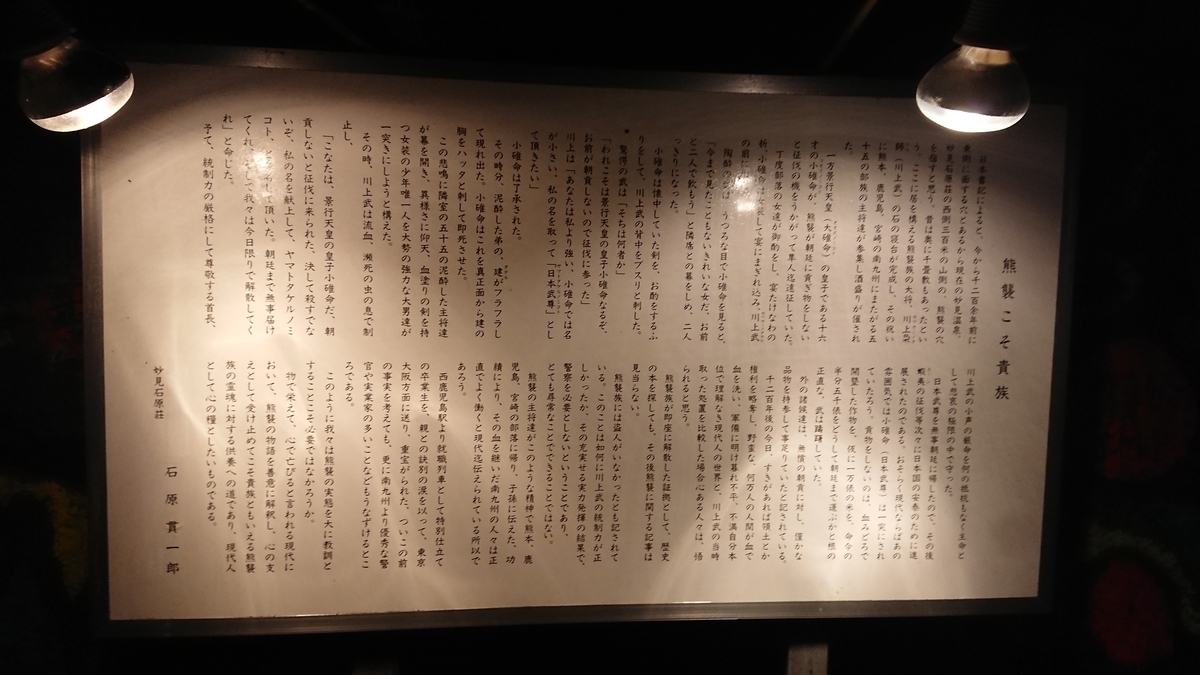 熊襲こそ貴族
日本書記によると、今から千二百余年前に
東側に面する穴とあるから現在の妙見温泉、
妙見石原荘の西側三百米の山側の、熊襲の穴
を指すと思う。昔は奥に千畳敷もあったとい
う、ここに居を構える熊襲族の大将、川上梟
師(川上武)の石の寝台が完成し、その祝い
に熊本、鹿児島、宮崎の南九州にまたがる五
十五の部族の主将達が参集し酒盛りが催され
た。
一方景行天皇(大確命)の皇子である十六
才の小確命が、熊襲が朝廷に貢ぎ物をしない
と征伐の機をうかがって隼人迄遠征していた。
丁度部落の女達が御酌をし、宴たけなわの
折、小確命は女装して宴にまぎれ込み、川上武
の前に
陶酔の武は、うつろな目で小確命を見ると、
「今まで見たこともないきれいな女だ、お前
と二人で飲もう」と隣席との幕をしめ、二人
っきりになった。
小確命は懐中していた剣を、お酌をするふ
りをして、川上武の背中をブスリと刺した。
驚愕の武は「そちは何者か」
「われこそは景行天皇の皇子小確命なるぞ、
お前が朝貢しないので征伐に参った」
川上は「あなたは私より強い、小確命では名
が小さい、私の名を取って「日本武尊」とし
て頂きたい」
小確命は了承された。
その時分、泥酔した弟の、建がフラフラし
て現れ出た。小確命はこれを真正面から建の
胸をハッタと刺して即死させた。
この悲鳴に隣室の五十五の泥酔した主将達
が幕を開き、異様さに仰天、血塗りの剣を持
つ女装の少年唯一人を大勢の強力な大男達が
一突きにしようと構えた。
その時、川上武は流血、瀕死の虫の息で制
止し、
「こなたは、景行天皇の皇子小確命だ、朝
貢しないと征伐に来られた、決して殺すでな
いぞ、私の名を献上して、ヤマトタケルノミ
コト、と して頂いた。朝廷まで無事届け
てくれ、そして我々は今日限りで解散してく
れ」と命じた。
予て、統制力の厳格にして尊敬する首長、
川上武の小声の厳命を何の抵抗もなく主命と
して悲累の極限の中で守った。
日本武尊を無事朝廷に帰したので、その後
蝦夷の征伐等次々に日本国の安泰のために進
展されたのである。おそらく現代ならばあの
雰囲気では小確命(日本武尊)は一突にされ
ていたろう。貢物をしないのは、血みどろで
開墾した作物を、仮に一万俵の米を、命令の
半分五千俵をどうして朝廷まで運ぶかと根の
正直な、武は躊躇していた。
外の諸候達は、無償の朝貢に対し、僅かな
品物を持参して事足りていたと記されている。
千二百年後の今日、すきがあれば領土とか
権利を略奪し、野蛮な、何万人の人間が血で
血を洗い、軍備に明け暮れ不平、不満自分本
位で理解なき現代人の世界と、川上武の当時
取った処置を比較した場合心ある人々は、悟
られると思う。
熊襲族が即座に解散した証拠として、歴史
の本を探しても、その後熊襲に関する記事は
見当らない。
熊襲族には盗人がいなかったとも記されて
いる。このことは如何に川上武の統制力が正
しかったか、その充実せる実力発揮の結果で、
警察を必要としないということであり、
とても尋常なことでできることではない。
熊襲の主将達がこのような精神で熊本、鹿
児島、宮崎の部落に帰り、子孫に伝えた、功
績により、その血を継いだ南九州の人々は正
直でよく働くと現代迄伝えられている所以で
あろう。
西鹿児島駅より就職列車として特別仕立て
の卒業生を、親との訣別の涙を以って、東京
大阪方面に送り、重宝がられた、ついこの前
の事実を考えても、更に南九州より優秀な警
官や実業家の多いことなどもうなずけるとこ
ろである。
このように我々は熊襲の実態を大に教訓と
することこそ必要ではなかろうか。
物で栄えて、心で亡びると言われる現代に
おいて、熊襲の物語を善意に解釈し、心の支
えとして受け止めてこそ貴族ともいえる熊襲
族の霊魂に対する供養への道であり、現代人
として心の糧としたいものである。
妙見石原荘
石原貫一郎